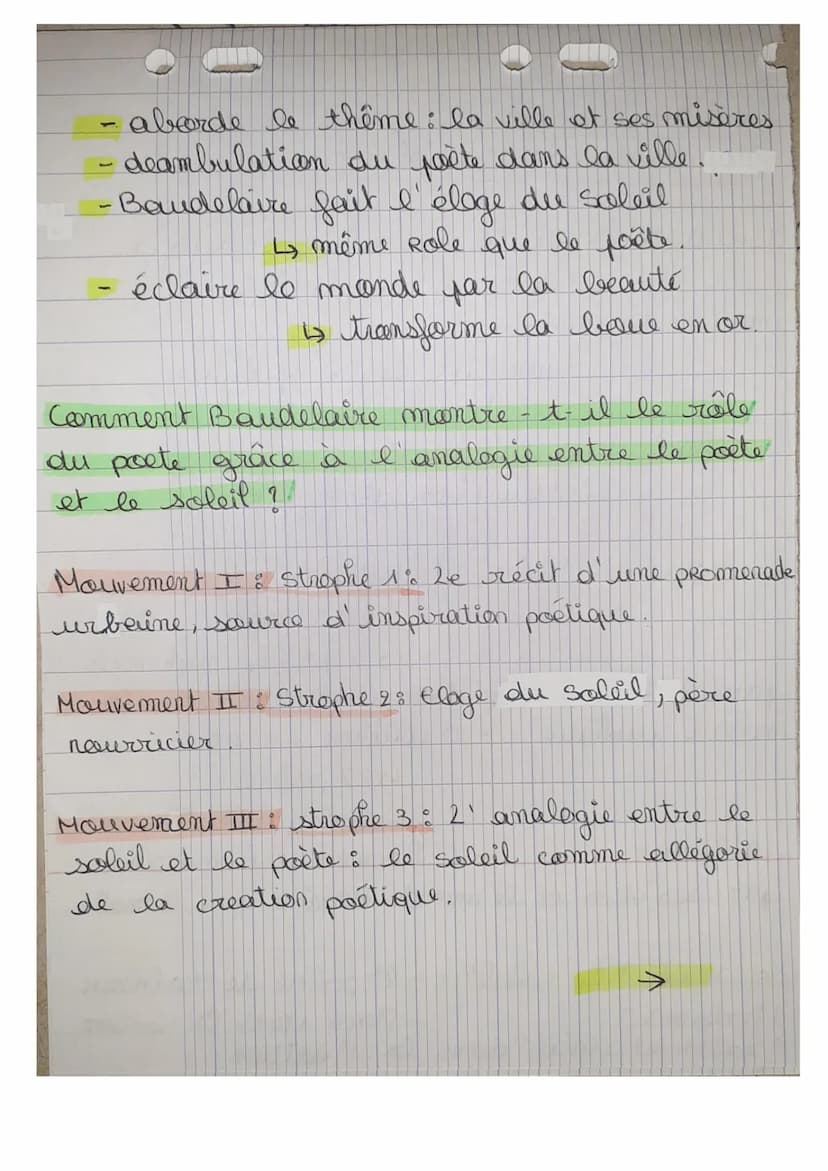 - aborde le thême : la ville et ses misères
- deambulation du poète dans la ville.
- Baudelaire fait l'éloge du soleil
↳ même role que le poête.
- éclaire le monde par la beauté
↳ transforme la boue en or.
Comment Baudelaire montre-t-il le rôle
du poete grâce à l'analogie entre le poète
et le soleil ?
Mouvement I : strophe 1 : Le récit d'une promenade
urbaine, source d'inspiration poétique.
Mouvement II : Strophe 2 : Eloge du soleil, père
nourricier.
Mouvement III : strophe 3 : L'analogie entre le
soleil et le poète : le soleil comme allégorie
de la creation poétique.
→